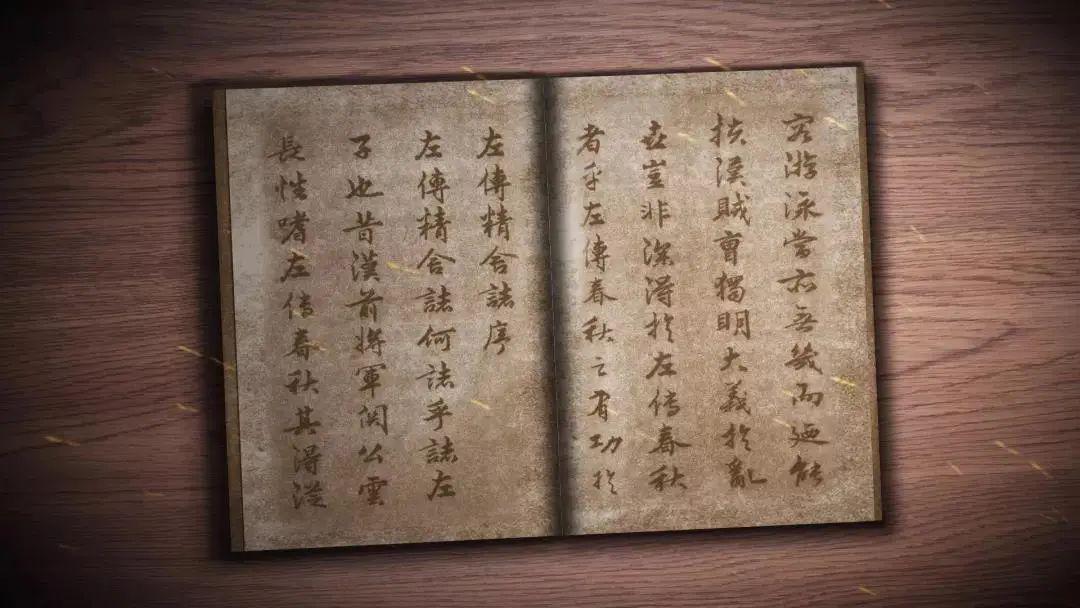 左傳精舍誌序
左傳精舍誌何誌乎誌左
子也昔漢前將軍関公雲
長性嗜左传春秋其得從
容游泳當亦無幾而廼能
扶漢賊曹獨明大義扵亂
世豈非深得扵左传春秋
者乎左傳春秋之有功扵